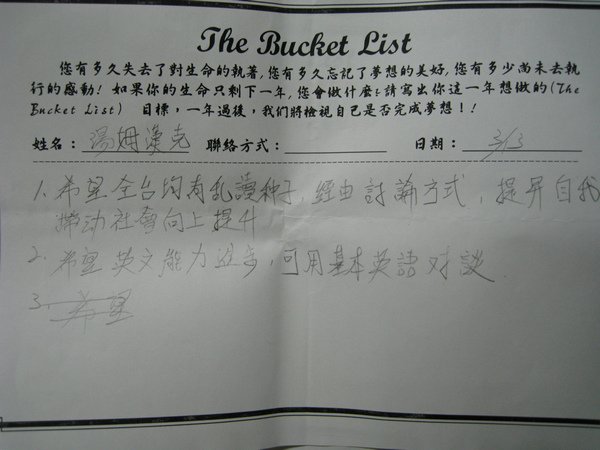 The Bucket List
您有多久失去了對生命的執著,您有多久忘記了夢想的美好,您有多少尚未去執
行的感動! 如果你的生命只剩下一年,您會做什麼?請寫出你這一年想做的(The
Bucket List) 目標,一年過後,我們將檢視自己是否完成夢想!!
姓名: 湯姆漢克 聯絡方式: 日期: 3/13
1. 希望全台均有乱讀种子,經由討論方式,提昇自我
帶动社會向上提升
2. 希望英文能力進步,可用基本英語对談
3. 希望